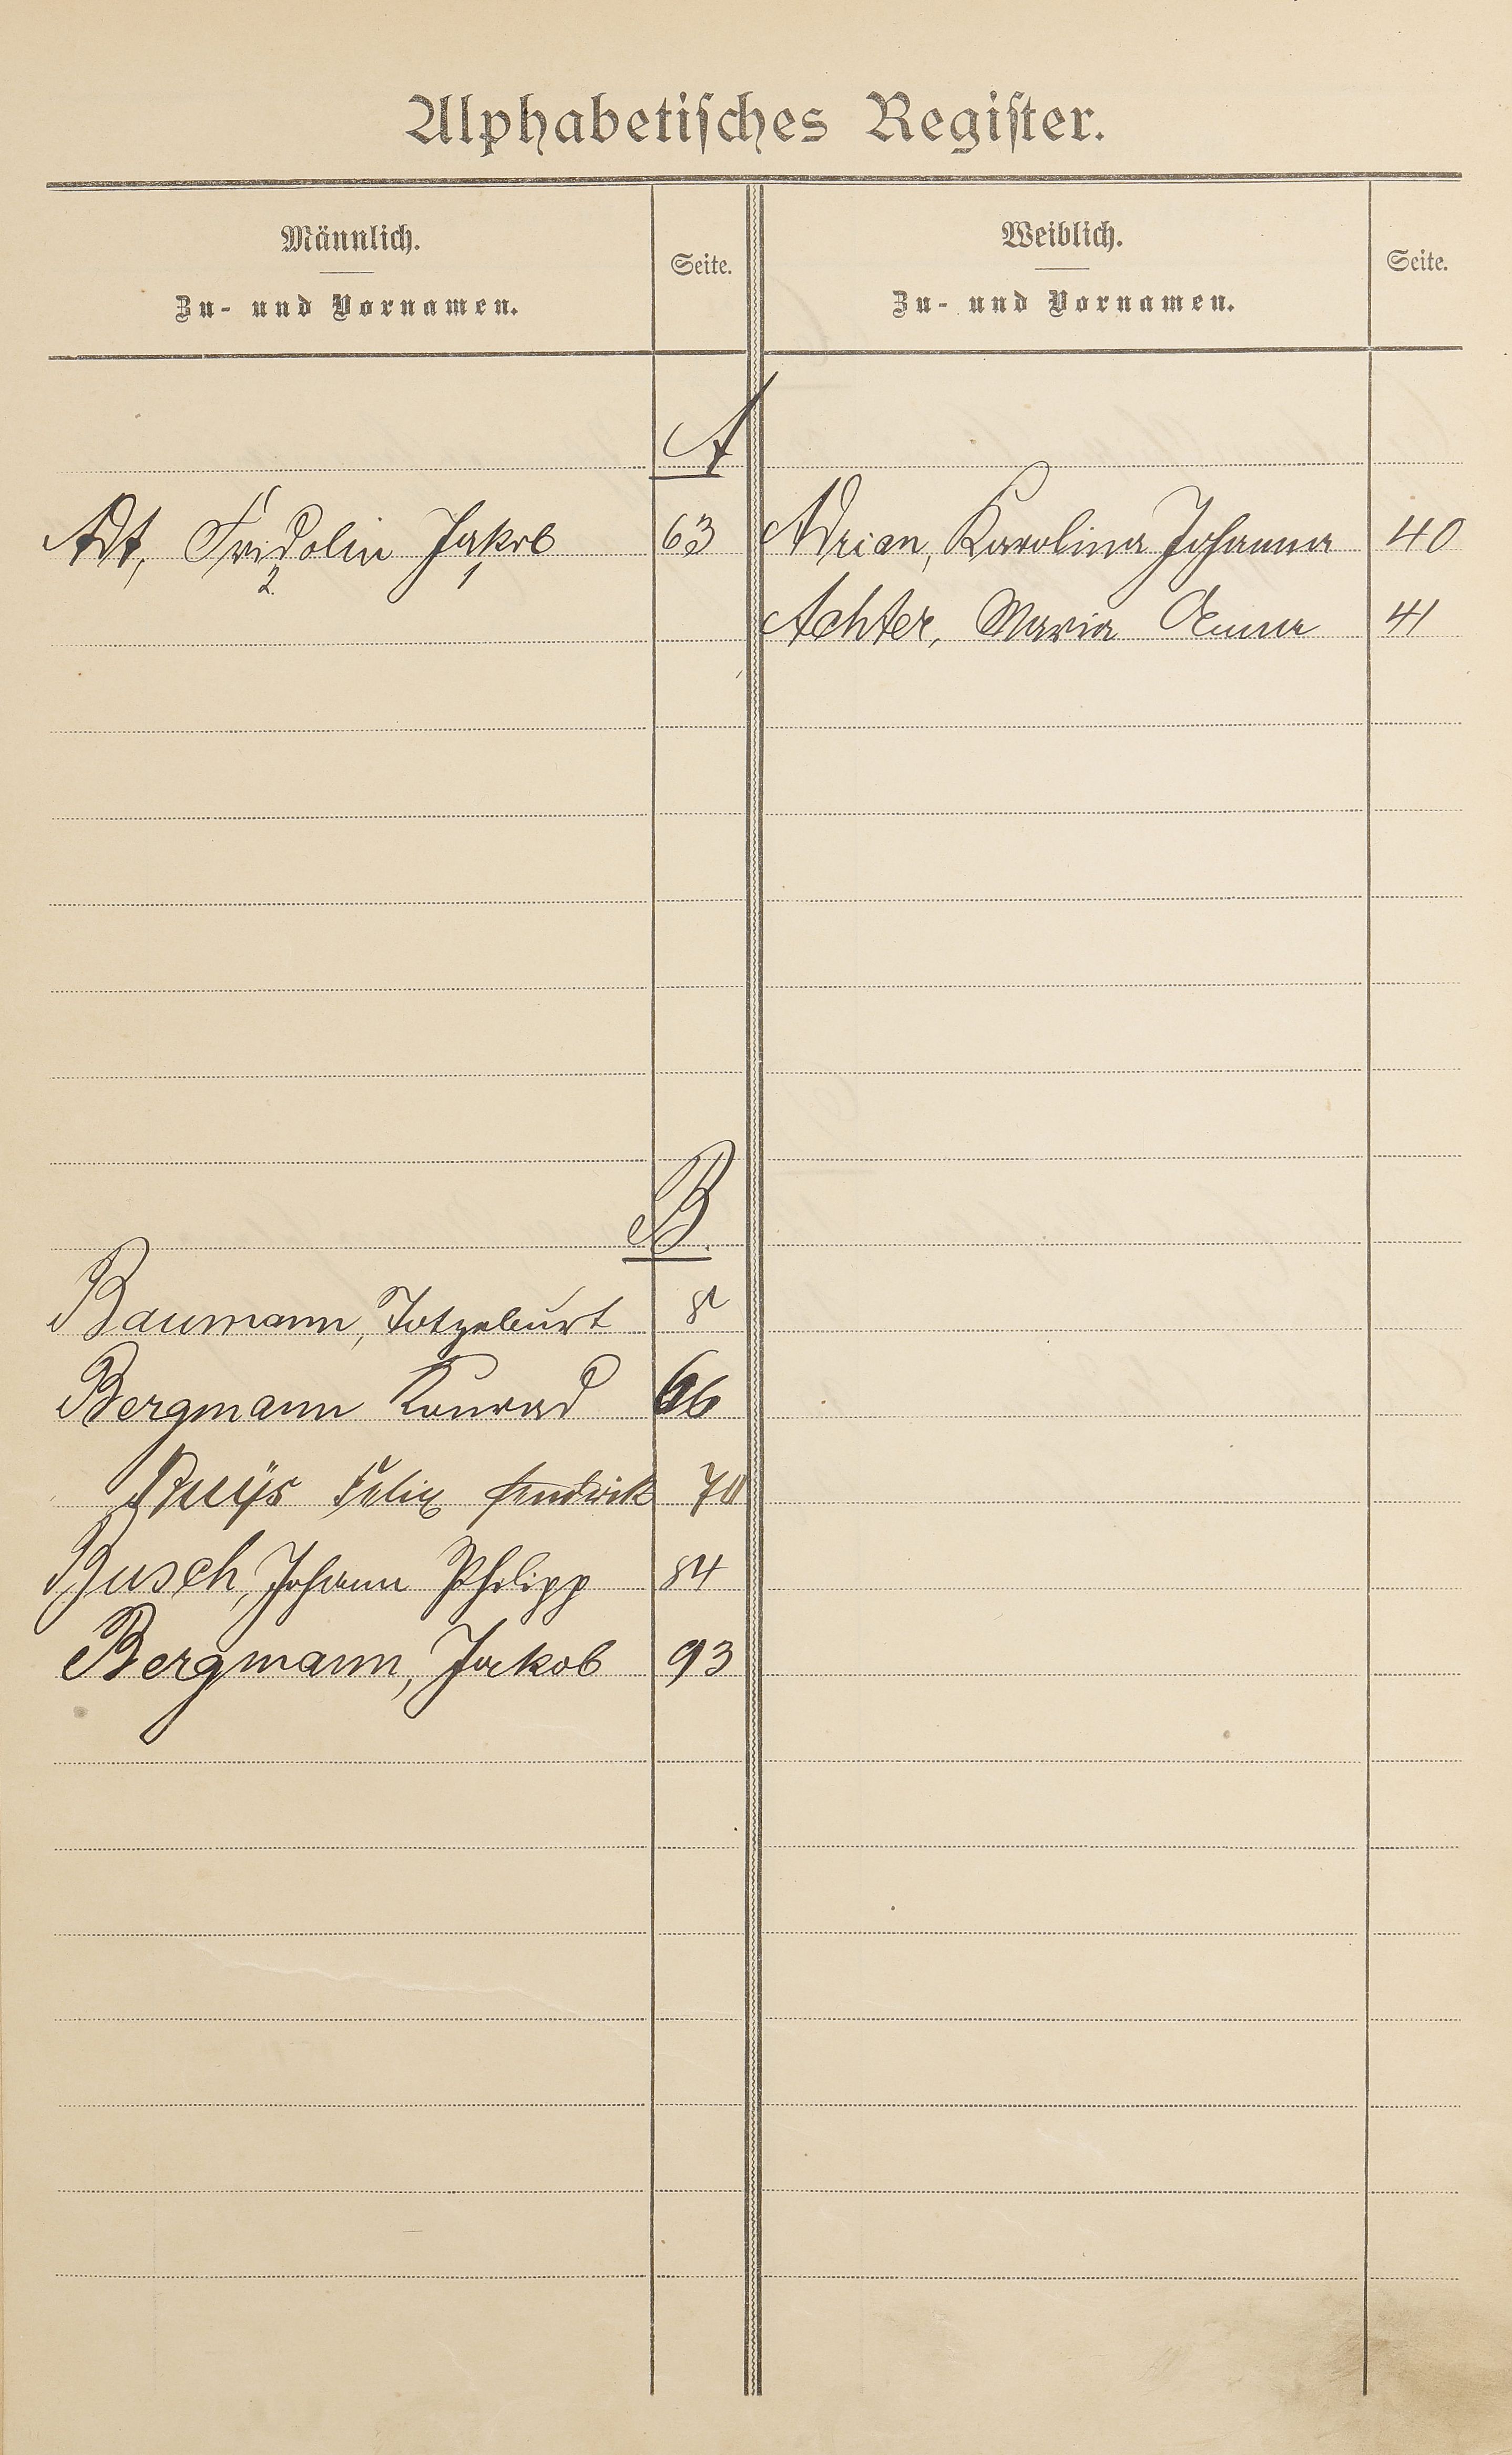 Alphabetisches Register.
Männlich.
Zu- und Vornamen.
Seite.
Weiblich.
Zu- und Vornamen.
Seite.
A
Adt, Fridolin Jakob 63
2. 1
Adrian, Karolina Johanna 40
Achter, Maria Anna 41
B
Baumann, Totgeburt 8
Bergmann Konrad 66
Felix 70
Busch, Johann Philipp 84
Bergmann, Jakob 93